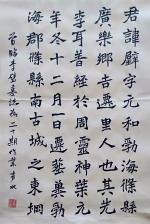 君諱璧字元和勃海條縣
廣樂鄉吉遷里人也其先
李耳著經於周靈神葉元
年冬十二月一日遷葬勃
海郡條縣南古城之東堈